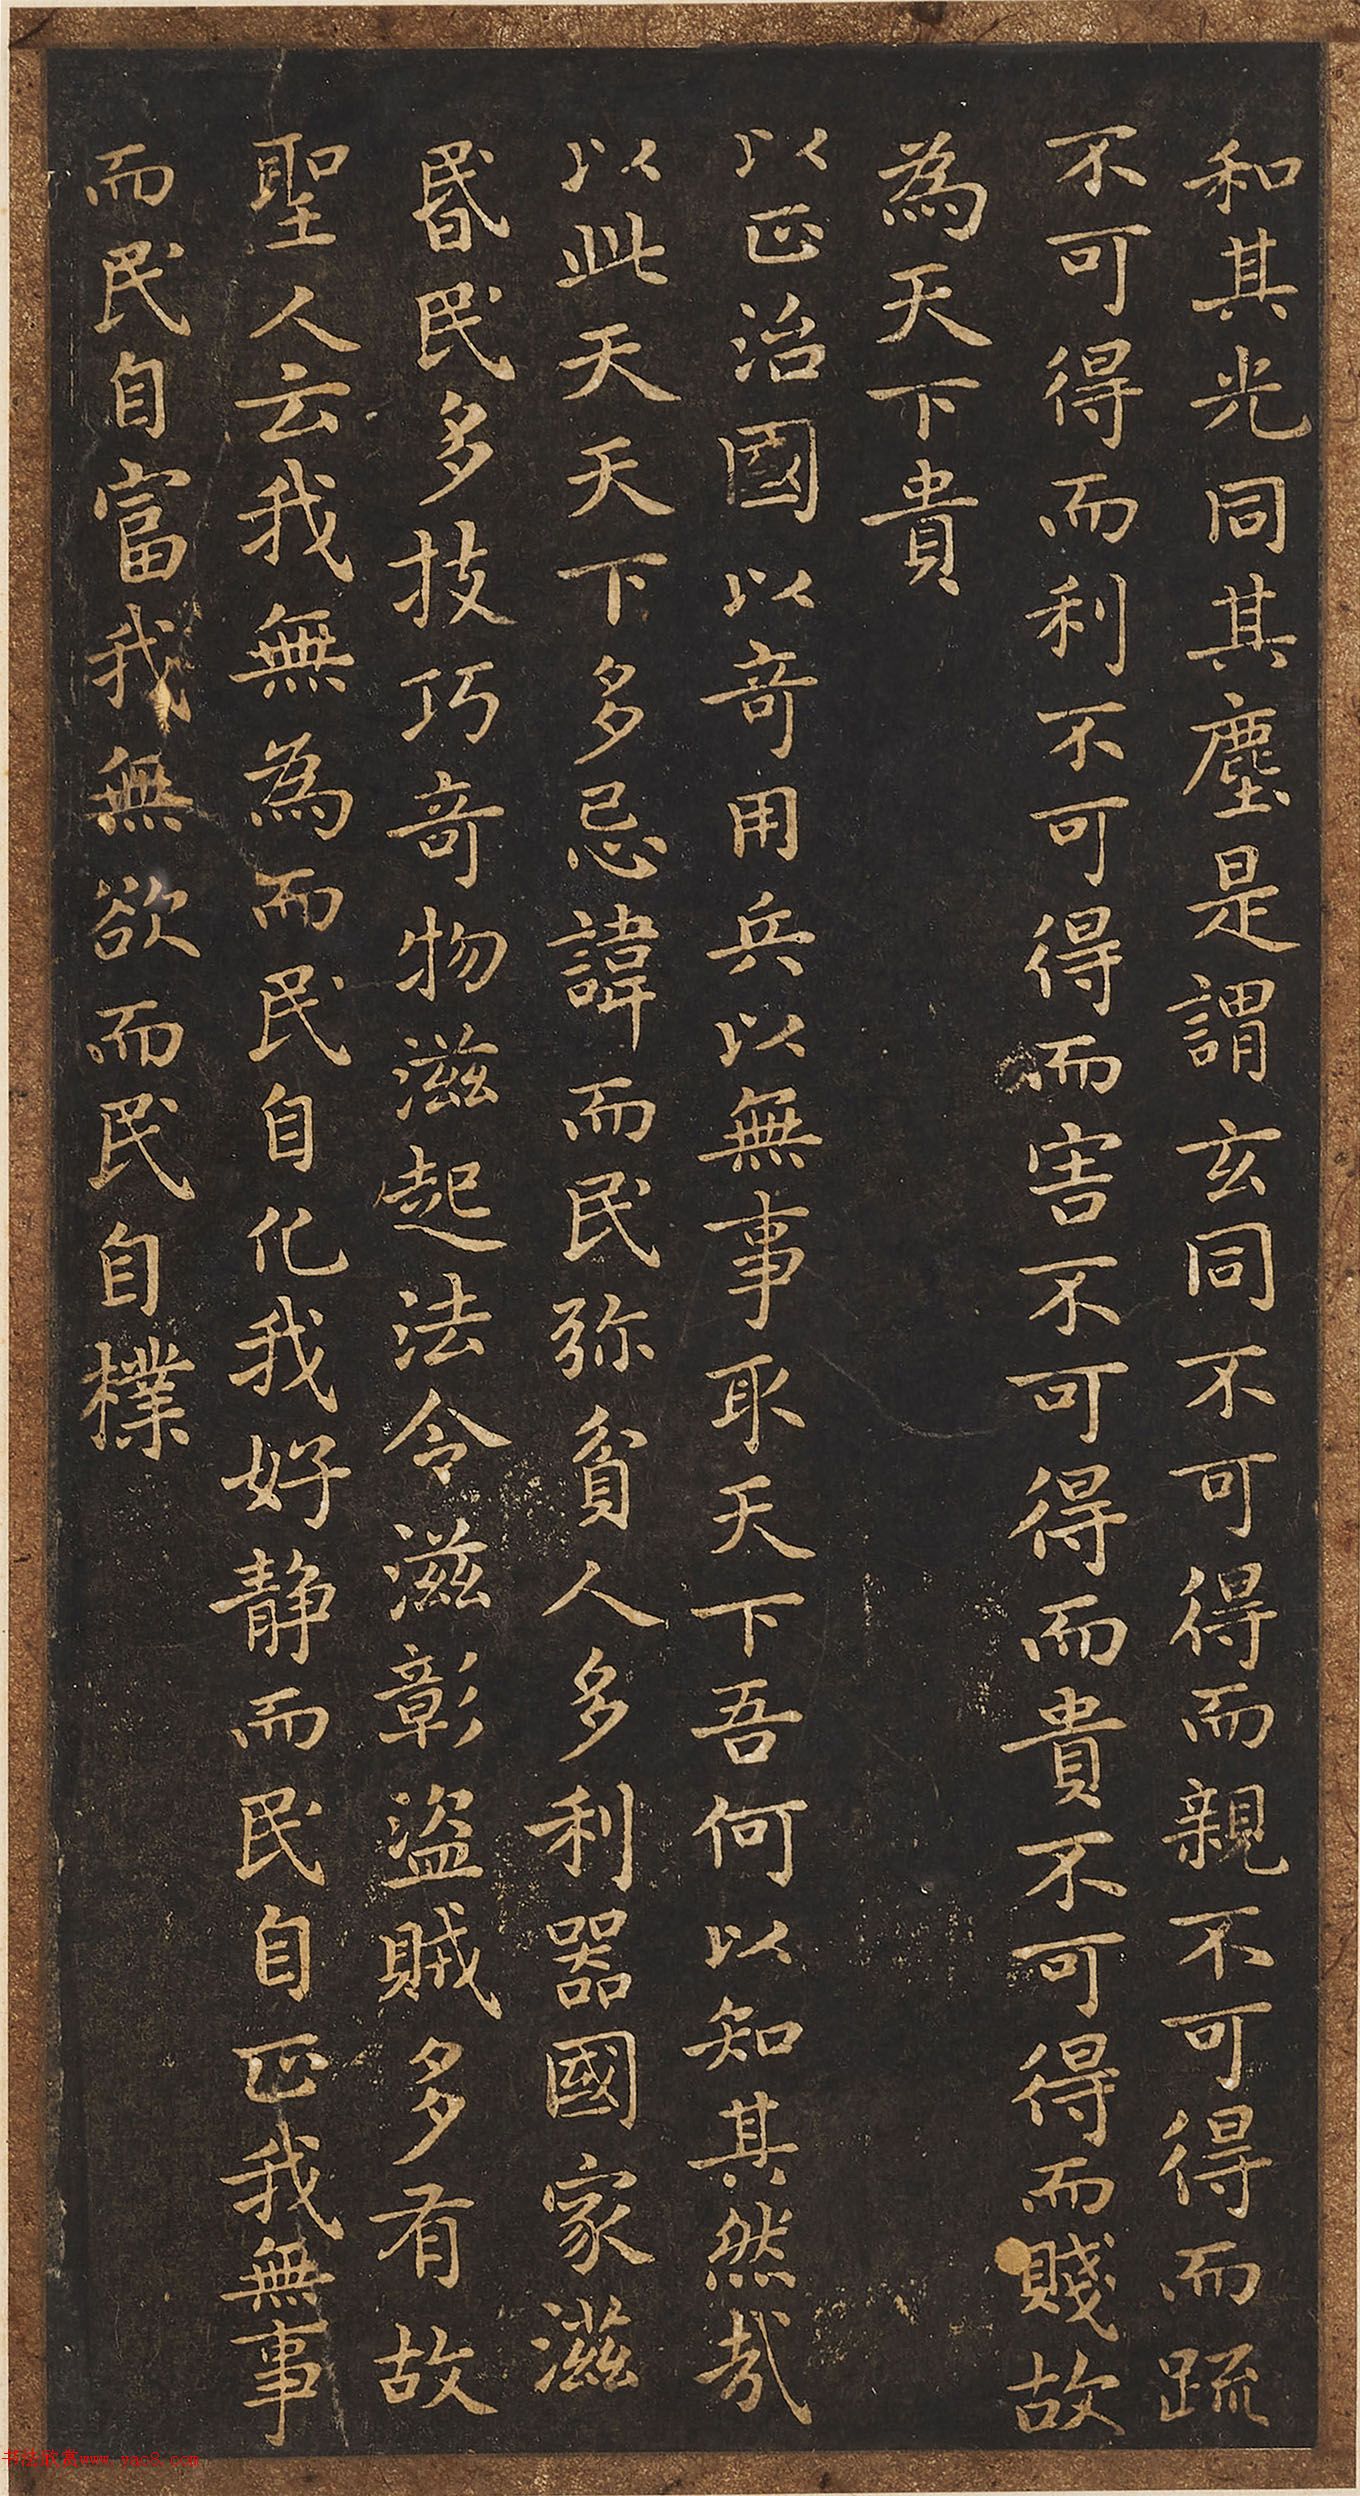 和其光同其塵是謂玄同不可得而親不可得而疏
不可得而利不可得而害不可得而貴不可得而賤故
為天下貴
以正治國以奇用兵以無事取天下吾何以知其然哉
以此天天下多忌諱而民弥貧人多利器國家滋
昬民多技巧奇物滋起法令滋彰盜賊多有故
聖人云我無為而民自化我好静而民自正我無事
而民自富我無欲而民自樸
书法欣赏www.yac8.com